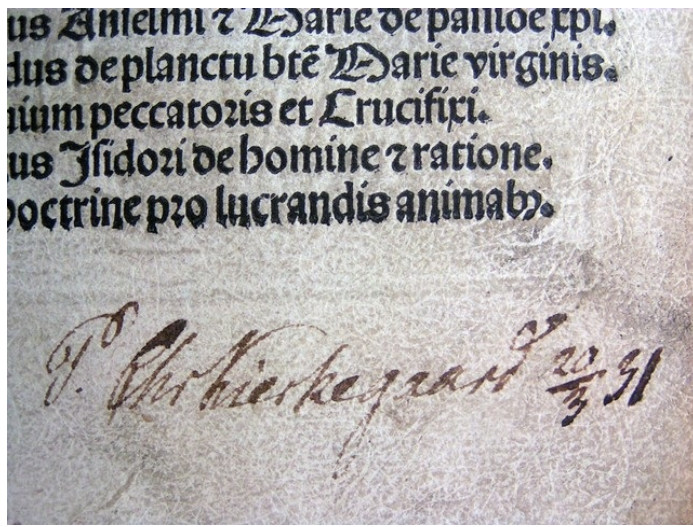 us Anselmi ⁊ Marie de passiōe xpi.
dus de planctu btē Marie virginis.
nium peccatoris et Crucifixi.
us Isidori de homine ⁊ ratione.
Doctrine pro lucrandis animabꝫ.
P. Chr Kierkegaard 20/3 31